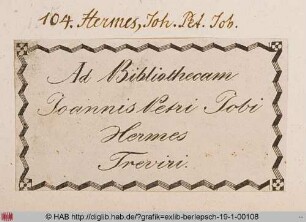 104. Hermes, Joh. Pet. Job.
Ad Bibliothecam
Joannis Petri Jobi
Hermes
Treviri.
© HAB http://diglib.hab.de/?grafik=exlib-berlepsch-19-1-00108